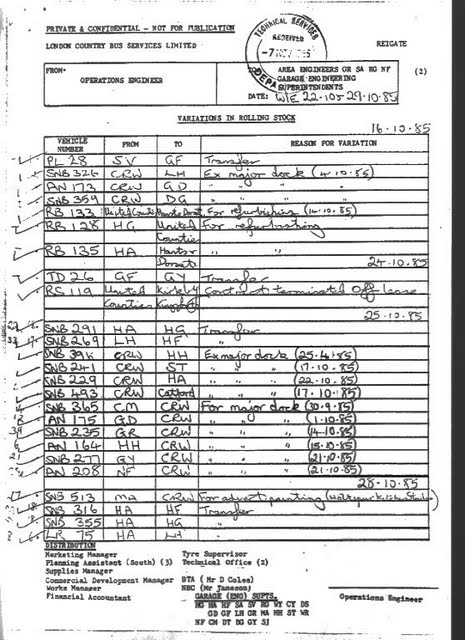 PRIVATE & CONFIDENTIAL - NOT FOR PUBLICATION
LONDON COUNTRY BUS SERVICES LIMITED
TECHNICAL SERVICES
RECEIVED
REIGATE
FROM:
OPERATIONS ENGINEER
AREA ENGINEERS GR SA HG NF (2)
GARAGE ENGINEERING
SUPERINTENDENTS
DATE: W/E 22-10 & 29-10-85
VARIATIONS IN ROLLING STOCK
16-10-85
VEHICLE NUMBER FROM TO REASON FOR VARIATION
PL 28 SV GF Transfer
SNB 326 CRW LH Ex major dock (4-10-85)
AN 173 CRW GD " " "
SNB 359 CRW DG " " "
RB 133 United Counties Hants & Dorset For refurbishing (14-10-85)
RB 128 HG United Counties For refurbishing
RB 135 HA Hants & Dorset " "
24-10-85
TD 26 GF GY Transfer
RS 119 United Counties Kirkby Kingsforth Contract terminated Off lease
25-10-85
SNB 291 HA HG Transfer
SNB 269 LH HF "
SNB 394 CRW HH Ex major dock (25-4-85)
SNB 241 CRW ST " " " (17-10-85)
SNB 229 CRW HA " " " (22-10-85)
SNB 493 CRW Catford " " " (17-10-85)
SNB 365 CM CRW For major dock (30-9-85)
AN 175 GD CRW " " " (1-10-85)
SNB 235 GR CRW " " " (14-10-85)
AN 164 HH CRW " " " (15-10-85)
SNB 277 GY CRW " " " (21-10-85)
AN 208 NF CRW " " " (21-10-85)
28-10-85
SNB 513 MA CRW For advert painting
SNB 316 HA HF Transfer
SNB 355 HA HG "
LR 75 HA LH "
DISTRIBUTION
Marketing Manager Tyre Supervisor
Planning Assistant (South) (3) Technical Office (2)
Supplies Manager
Commercial Development Manager BTA (Mr D Coles)
Works Manager NBC (Mr Jameson)
Financial Accountant GARAGE (ENG) SUPTS. Operations Engineer
HG HA HF SA SV RG WY CY DS
GD GF LH GR MA HH ST WR
NF CM DT DG GY SJ